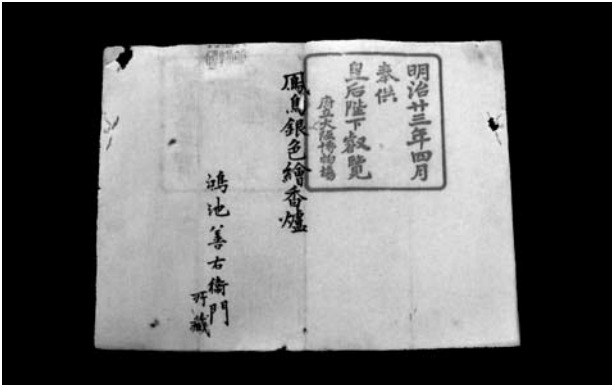 明治廿三年四月
奉供
皇后陛下叡覧
府立大阪博物場
鳳鳥銀色繪香爐
鴻池善右衞門
所藏